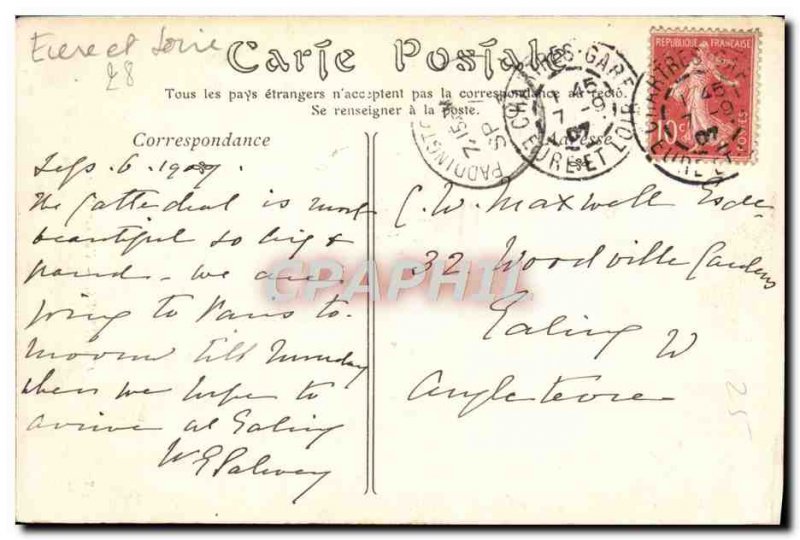 Eure et Loire
28
Carte Postale
Tous les pays étrangers n'acceptent pas la correspondance au recto.
Se renseigner à la poste.
Correspondance
Adresse
REPUBLIQUE FRANÇAISE
10c
POSTES
CHARTRES-GARE
45
7-9
07
EURE-ET-LOIR
CHARTRES-GARE
45
7-9
07
EURE-ET-LOIR
PADDINGTON
7.15
SP
Sep. 6. 1907.
The Cathedral is most
beautiful so big &
grand - we are
going to Paris to-
morrow till Monday
when we hope to
arrive at Ealing
C. W. Maxwell Esqre
32 Woodville Gardens
Ealing W
Angleterre
25
CPAPHIL